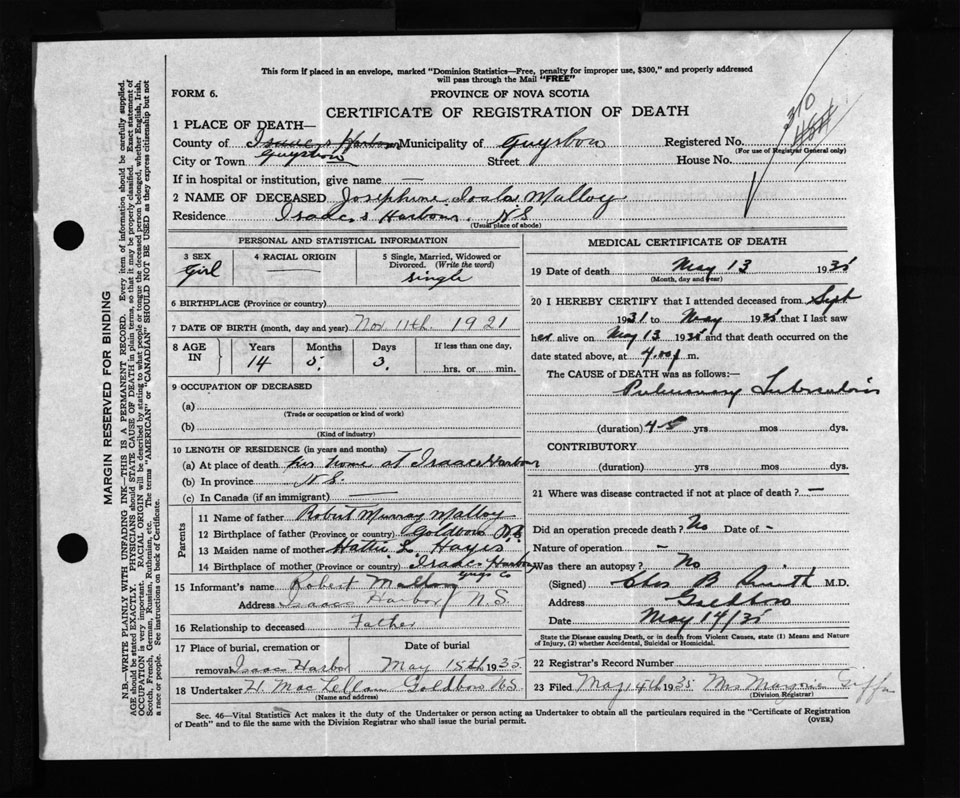 This form if placed in an envelope, marked "Dominion Statistics—Free, penalty for improper use, $300," and properly addressed
will pass through the Mail "FREE"
FORM 6.
PROVINCE OF NOVA SCOTIA
CERTIFICATE OF REGISTRATION OF DEATH
310
1 PLACE OF DEATH—
County of Isaac's Harbour Municipality of Guysboro Registered No.
(For use of Registrar General only)
City or Town Guysboro Street House No.
If in hospital or institution, give name —
2 NAME OF DECEASED Josephine Malloy
Residence Isaac's Harbour. N.S.
(Usual place of abode)
PERSONAL AND STATISTICAL INFORMATION
3 SEX
Girl
4 RACIAL ORIGIN
—
5 Single, Married, Widowed or
Divorced. (Write the word)
Single
6 BIRTHPLACE (Province or country)
7 DATE OF BIRTH (month, day and year) Nov. 11th. 1921
8 AGE
IN
Years Months Days If less than one day,
14 5. 3. hrs. or min.
9 OCCUPATION OF DECEASED
(a)
(Trade or occupation or kind of work)
(b)
(Kind of industry)
10 LENGTH OF RESIDENCE (in years and months)
(a) At place of death her home at Isaacs Harbour
(b) In province N.S.
(c) In Canada (if an immigrant) —
Parents
11 Name of father Robert Murray Malloy
12 Birthplace of father (Province or country) Goldboro N.S.
13 Maiden name of mother Hattie L. Hayes
14 Birthplace of mother (Province or country) Isaacs Harbour
Guys Co
15 Informant's name Robert Malloy
Address Isaacs Harbor N.S.
16 Relationship to deceased Father
17 Place of burial, cremation or Date of burial
removal Isaac Harbor May 15th 1935
18 Undertaker H. MacLellan Goldboro N.S.
(Name and address)
MEDICAL CERTIFICATE OF DEATH
19 Date of death May 13 1935
(Month, day and year)
20 I HEREBY CERTIFY that I attended deceased from Sept
1931 to May 1935 that I last saw
her alive on May 13 1935 and that death occurred on the
date stated above, at m.
The CAUSE of DEATH was as follows:—
Pulmonary Tuberculosis
(duration) 4-5 yrs mos dys.
CONTRIBUTORY
(duration) yrs. mos. dys.
21 Where was disease contracted if not at place of death? —
Did an operation precede death? No Date of -
Nature of operation -
Was there an autopsy? No
(Signed) Chas B Smith M.D.
Address Goldboro
Date May 14/35
State the Disease causing Death, or in death from Violent Causes, state (1) Means and Nature
of Injury, (2) whether Accidental, Suicidal or Homicidal.
22 Registrar's Record Number
23 Filed May 14th 1935 Mrs Marjorie Giffin
(Division Registrar)
Sec. 46—Vital Statistics Act makes it the duty of the Undertaker or person acting as Undertaker to obtain all the particulars required in the "Certificate of Registration
of Death" and to file the same with the Division Registrar who shall issue the burial permit.
(OVER)
MARGIN RESERVED FOR BINDING
N.B.—WRITE PLAINLY WITH UNFADING INK—THIS IS A PERMANENT RECORD. Every item of information should be carefully supplied.
AGE should be stated EXACTLY. PHYSICIANS should STATE CAUSE OF DEATH in plain terms, so that it may be properly classified. Exact statement of
OCCUPATION is very important. RACIAL ORIGIN will be described by stating to what people or tongue the deceased person belonged, whether English, Irish,
Scotch, French, German, Russian, Ruthenian, etc. The terms "AMERICAN" or "CANADIAN" SHOULD NOT BE USED as they express citizenship but not
a race or people. See instructions on back of Certificate.